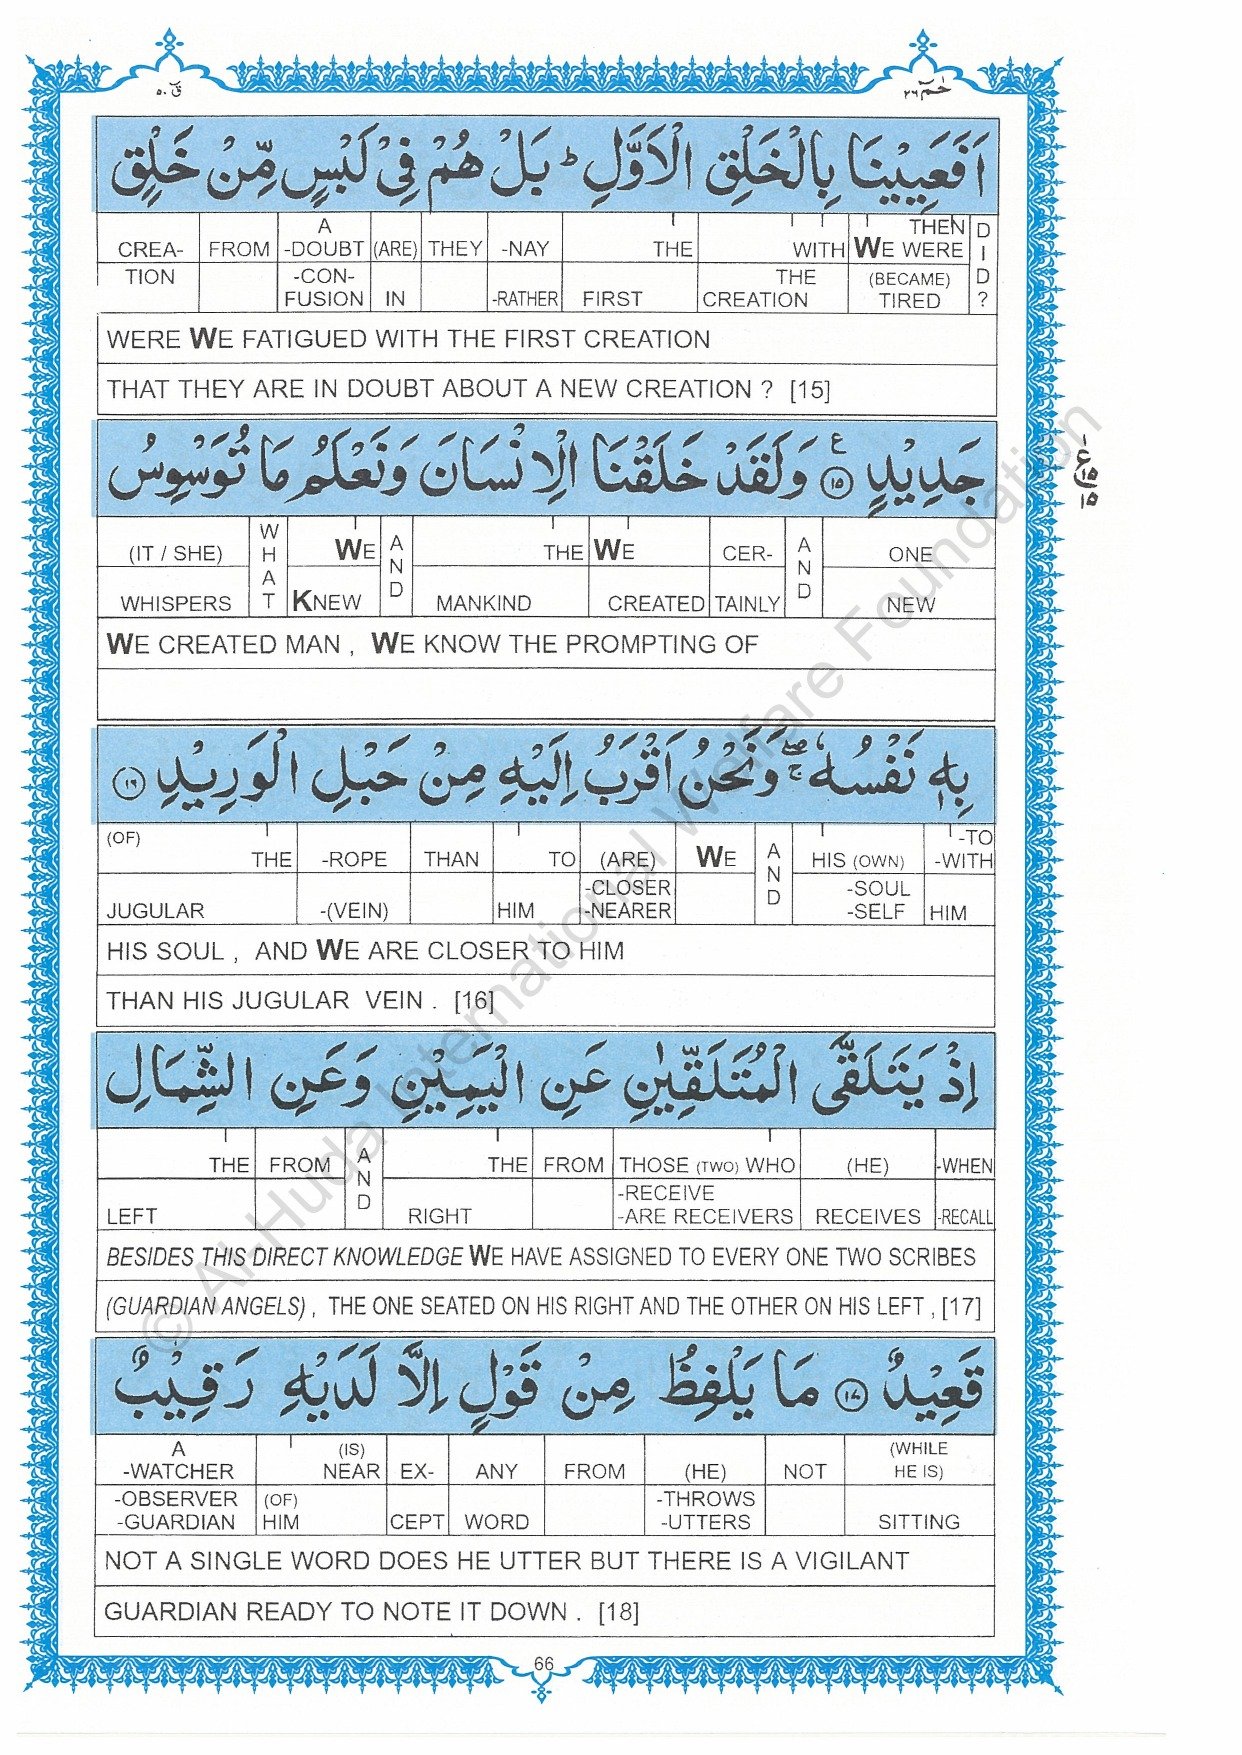 قٓ ٥٠
حٰمٓ ٢٦
اَفَعَيِيْنَا بِالْخَلْقِ الْاَوَّلِ ؕ بَلْ هُمْ فِيْ لَبْسٍ مِّنْ خَلْقٍ
A THEN D
CREA- FROM -DOUBT (ARE) THEY -NAY THE WITH WE WERE I
TION -CON- THE (BECAME) D
FUSION IN -RATHER FIRST CREATION TIRED ?
WERE WE FATIGUED WITH THE FIRST CREATION
THAT THEY ARE IN DOUBT ABOUT A NEW CREATION ? [15]
جَدِيْدٍ ۧ ﴿١٥﴾ وَلَقَدْ خَلَقْنَا الْاِنْسَانَ وَنَعْلَمُ مَا تُوَسْوِسُ
ع ١٥ ١٥
(IT / SHE) WHAT WE AND THE WE CER- AND ONE
WHISPERS KNEW MANKIND CREATED TAINLY NEW
WE CREATED MAN , WE KNOW THE PROMPTING OF
بِهٖ نَفْسُهٗ ۖۚ وَنَحْنُ اَقْرَبُ اِلَيْهِ مِنْ حَبْلِ الْوَرِيْدِ ﴿١٦﴾
(OF) -TO
THE -ROPE THAN TO (ARE) WE AND HIS (OWN) -WITH
-CLOSER -SOUL
JUGULAR -(VEIN) HIM -NEARER -SELF HIM
HIS SOUL , AND WE ARE CLOSER TO HIM
THAN HIS JUGULAR VEIN . [16]
اِذْ يَتَلَقَّى الْمُتَلَقِّيٰنِ عَنِ الْيَمِيْنِ وَعَنِ الشِّمَالِ
THE FROM AND THE FROM THOSE (TWO) WHO (HE) -WHEN
-RECEIVE
LEFT RIGHT -ARE RECEIVERS RECEIVES -RECALL
BESIDES THIS DIRECT KNOWLEDGE WE HAVE ASSIGNED TO EVERY ONE TWO SCRIBES
(GUARDIAN ANGELS) , THE ONE SEATED ON HIS RIGHT AND THE OTHER ON HIS LEFT , [17]
قَعِيْدٌ ﴿١٧﴾ مَا يَلْفِظُ مِنْ قَوْلٍ اِلَّا لَدَيْهِ رَقِيْبٌ
A (IS) (WHILE
-WATCHER NEAR EX- ANY FROM (HE) NOT HE IS)
-OBSERVER (OF) -THROWS
-GUARDIAN HIM CEPT WORD -UTTERS SITTING
NOT A SINGLE WORD DOES HE UTTER BUT THERE IS A VIGILANT
GUARDIAN READY TO NOTE IT DOWN . [18]
66
© Al-Huda International Welfare Foundation